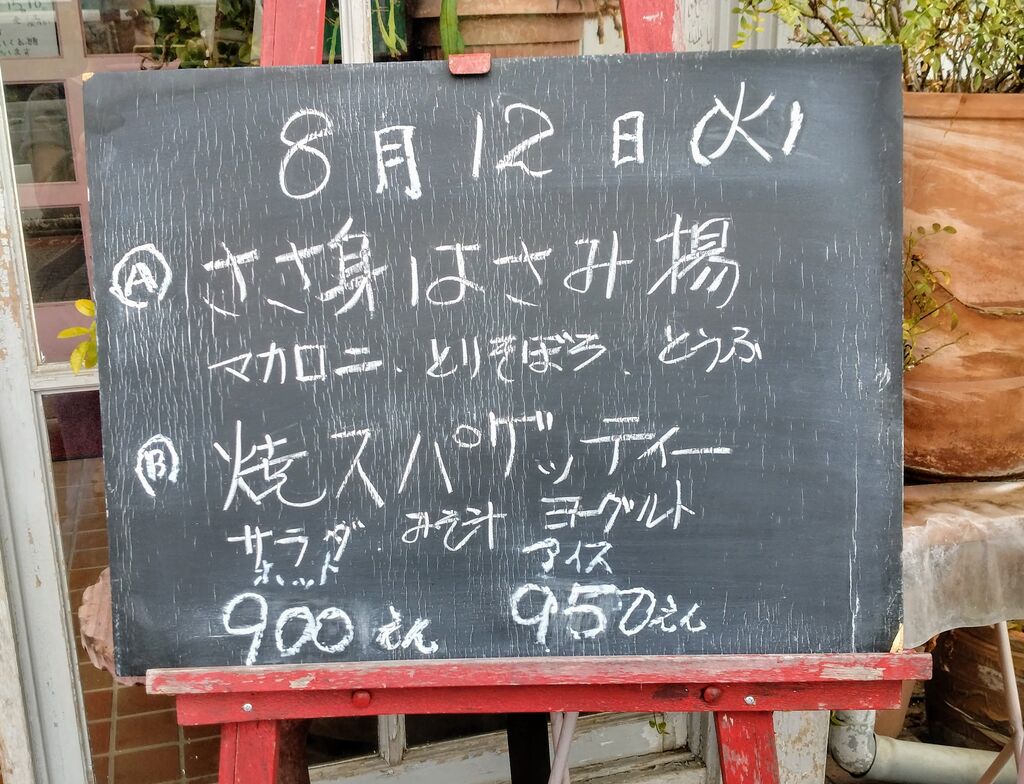 8月12日(火)
Ⓐ ささ身はさみ揚
マカロニ、とりそぼろ、とうふ
Ⓑ 焼スパゲッティー
サラダ、みそ汁 ヨーグルト
ホット アイス
900えん 950えん